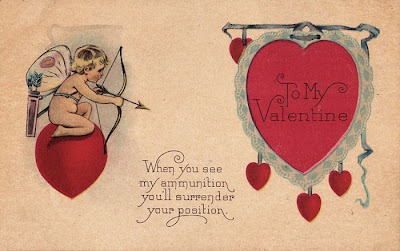 To My
Valentine
When you see
my ammunition
you'll surrender
your position.